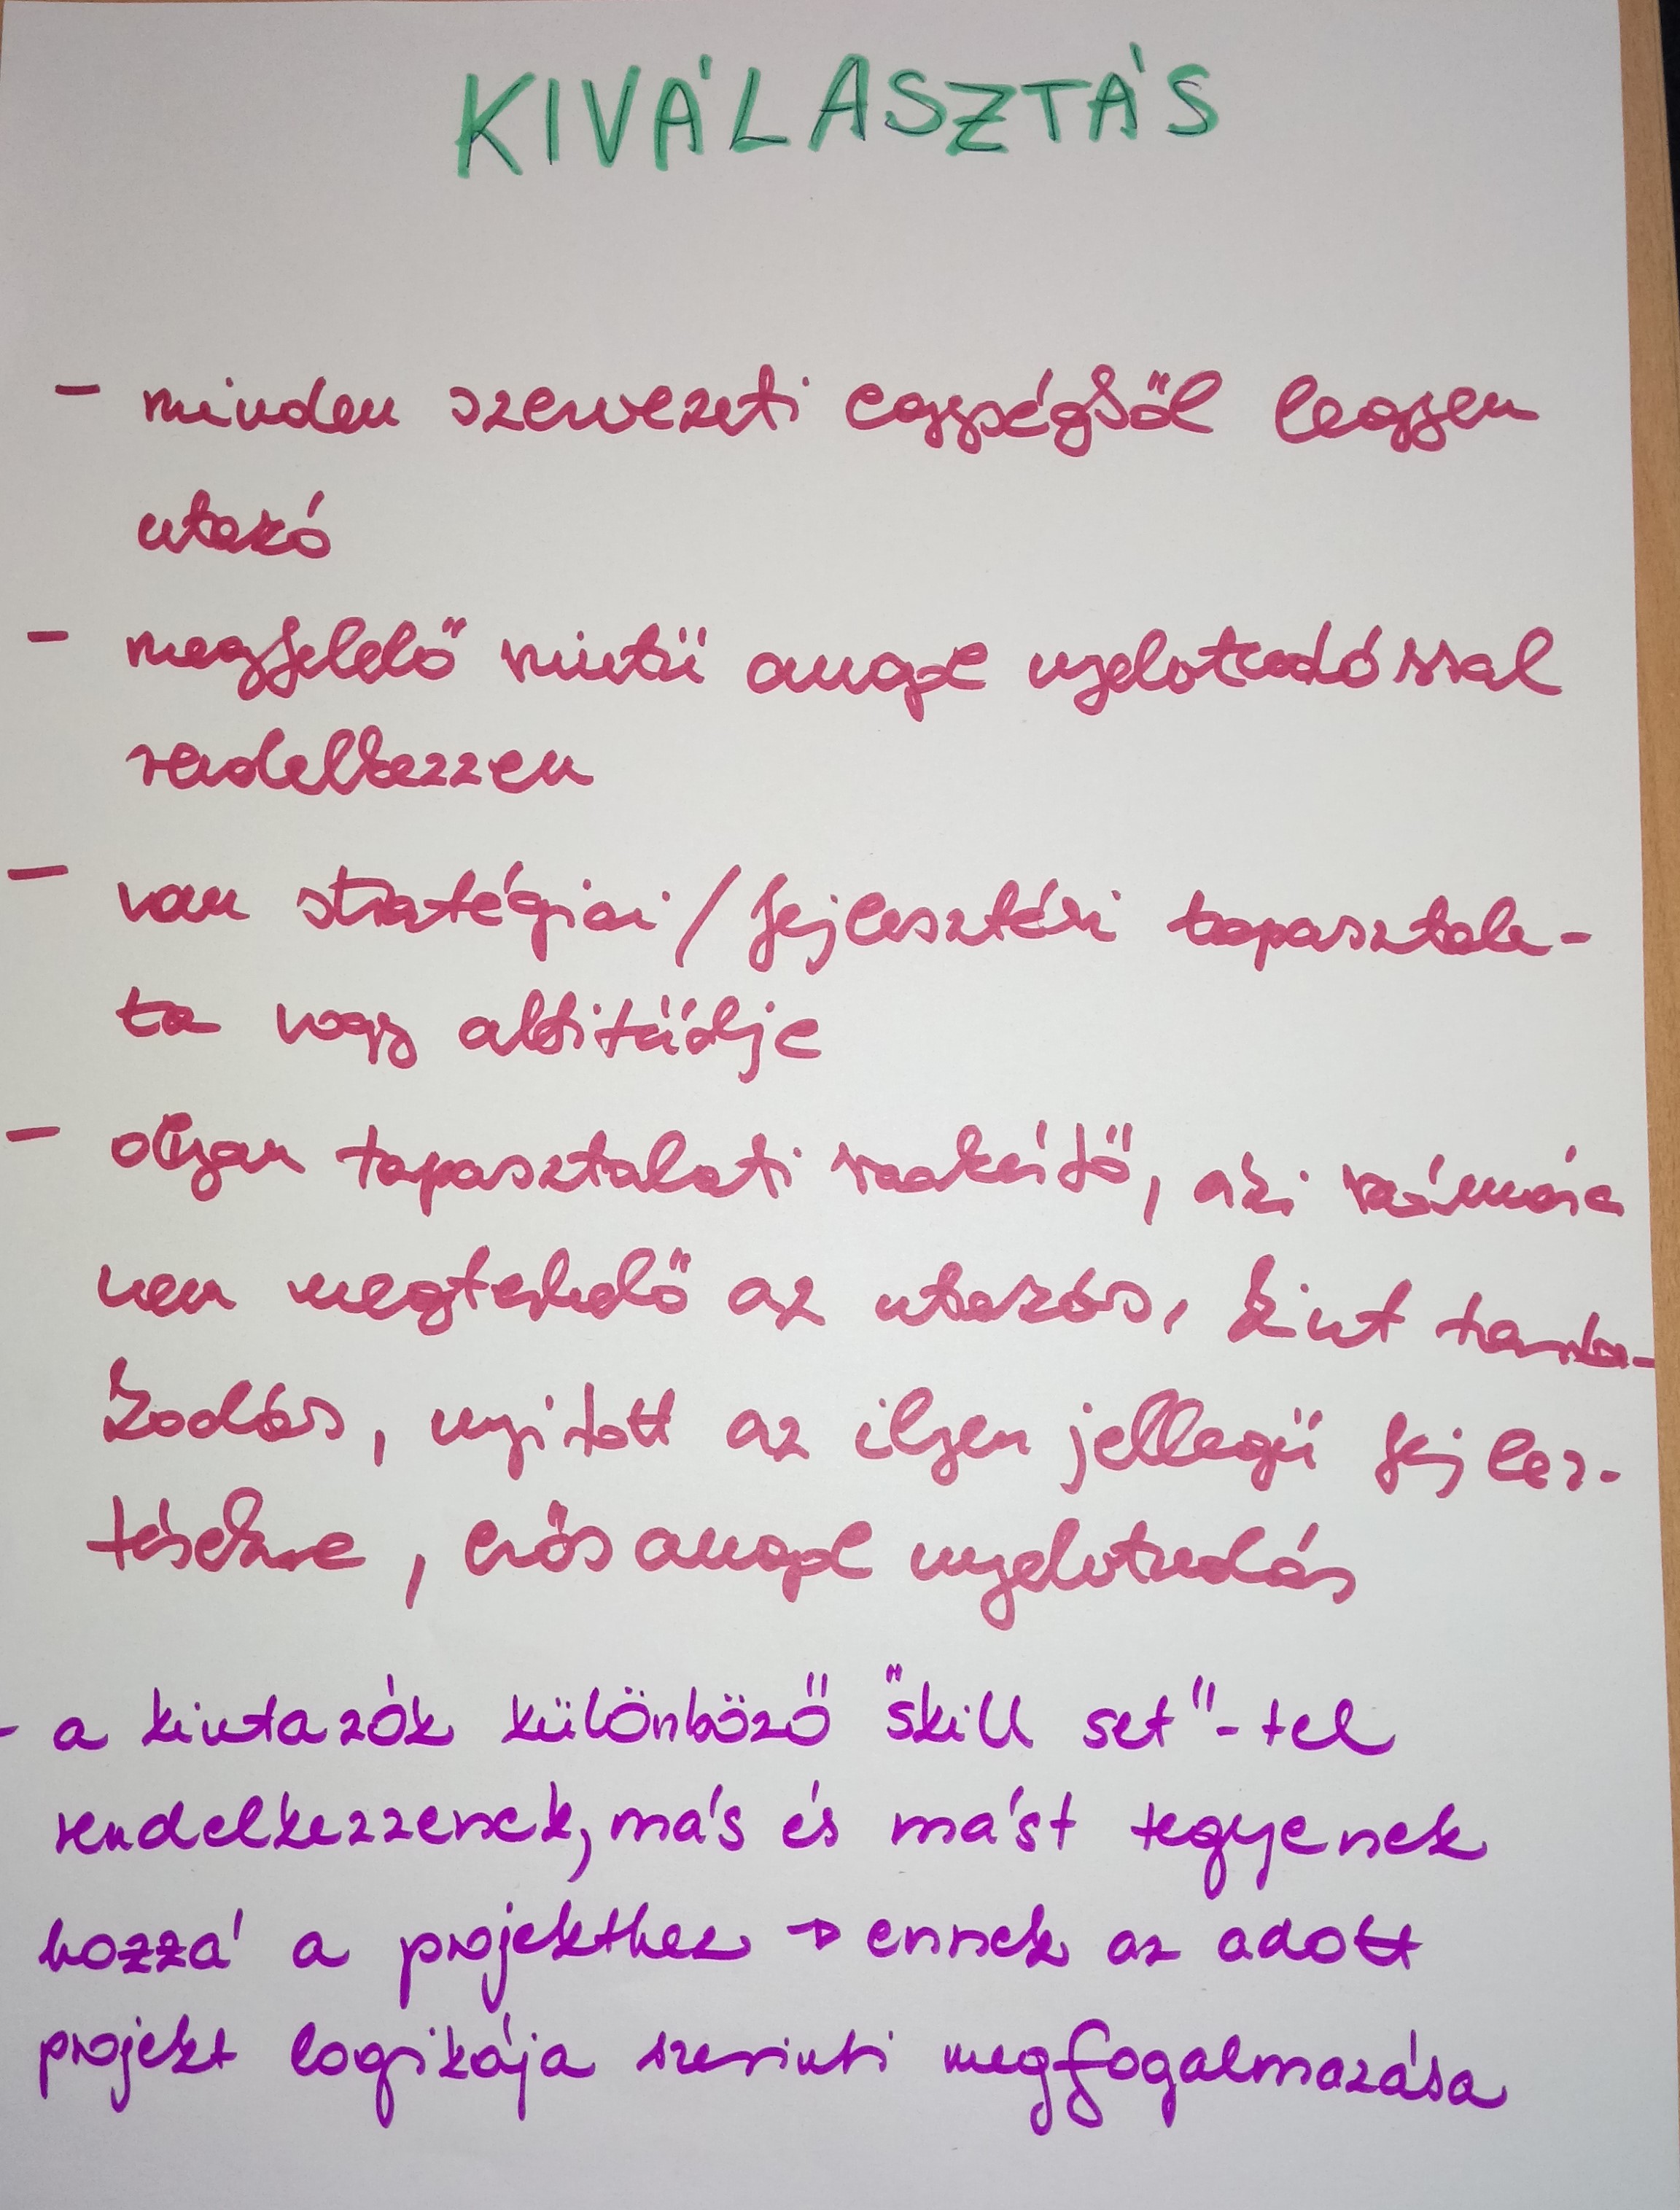 KIVÁLASZTÁS
- minden szervezeti egységből legyen
utazó
- megfelelő szintű angol nyelvtudással
rendelkezzen
- van stratégiai/fejlesztési tapasztala-
ta vagy attitűdje
- olyan tapasztalati szakértő, aki számára
nem megterhelő az utazás, kint tartóz-
kodás, nyitott az ilyen jellegű fejlesz-
tésekre, erős angol nyelvtudás
- a kiutazók különböző "skill set"-tel
rendelkezzenek, más és mást tegyenek
hozzá a projekthez → ennek az adott
projekt logikája szerinti megfogalmazása